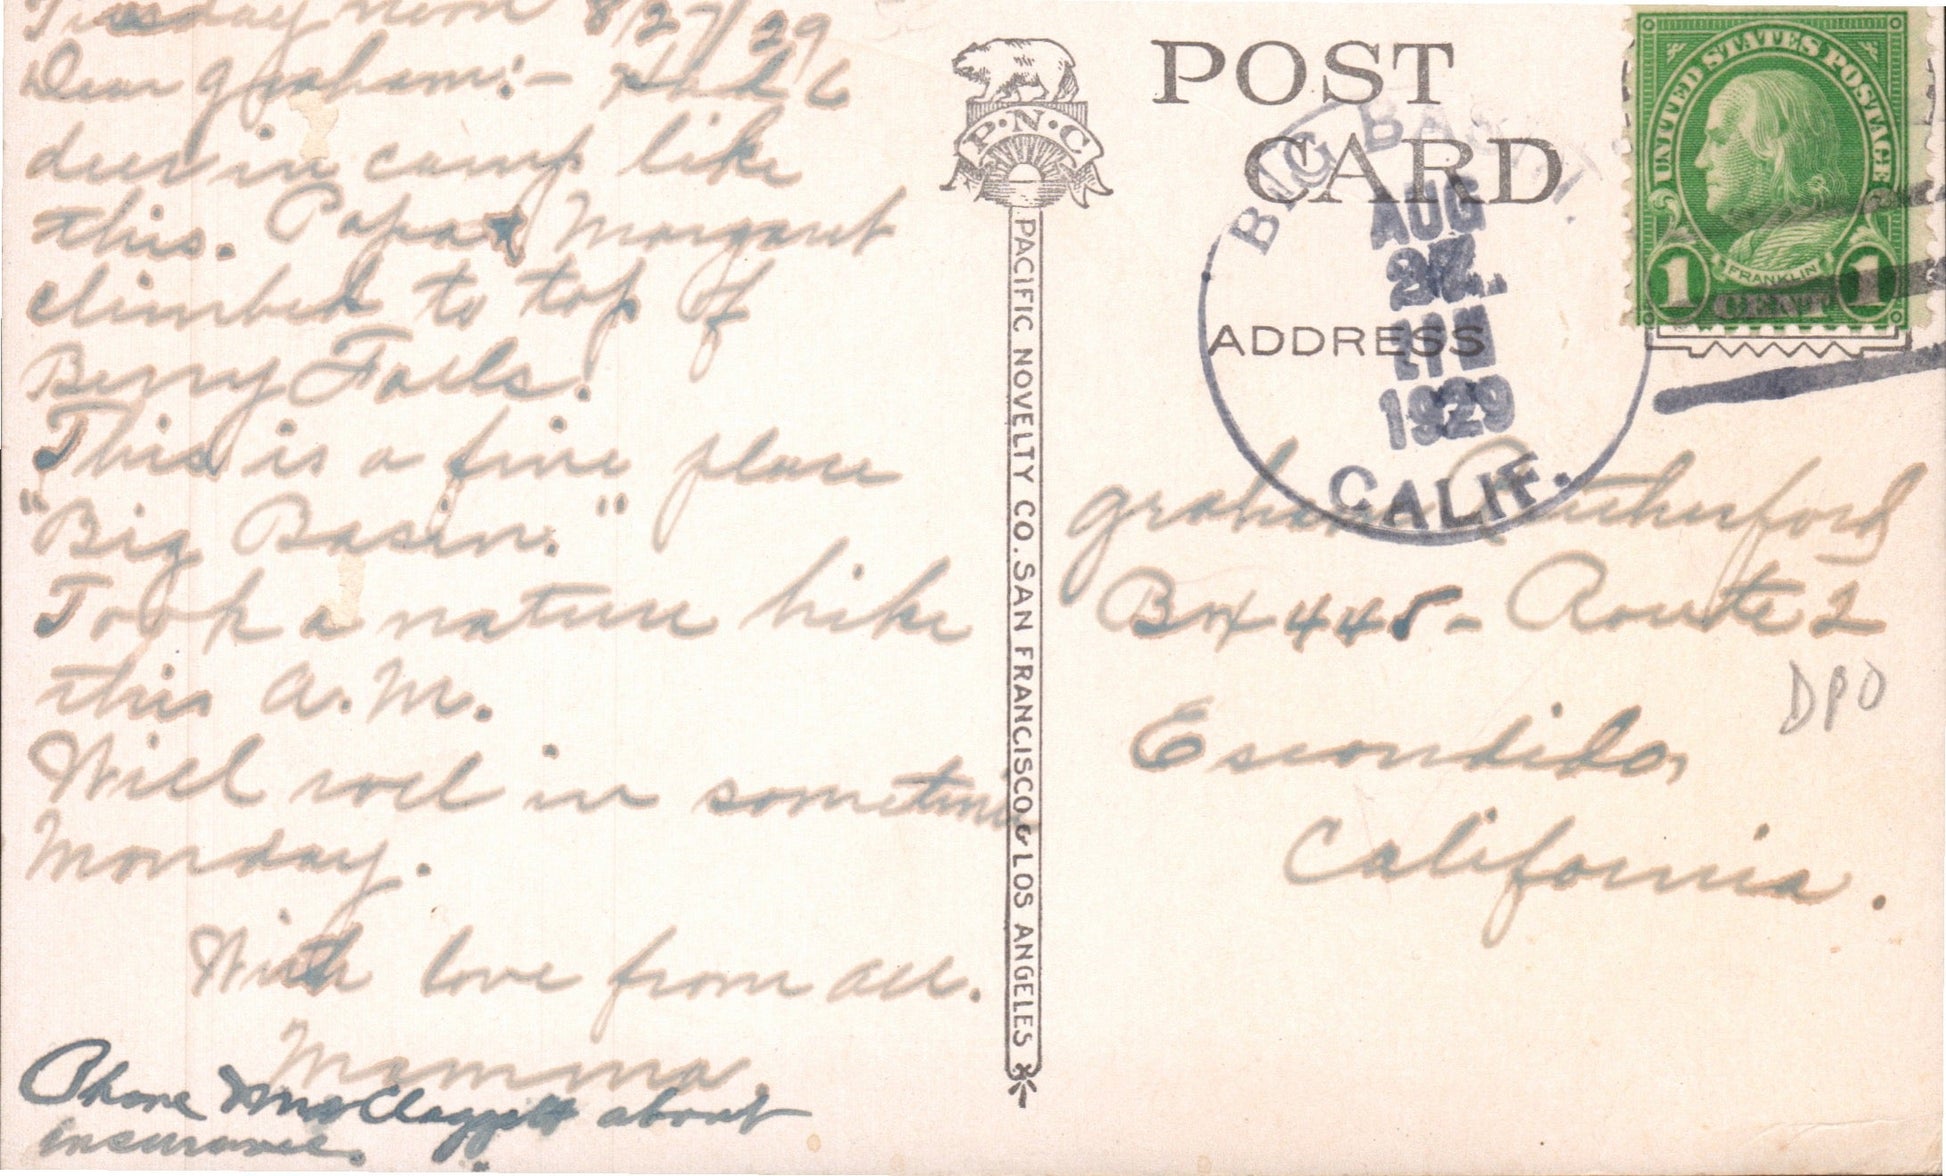 Tuesday noon 8/27/29
Dear Graham:- Had 6
deer in camp like
this. Papa & Margaret
climbed to top of
Berry Falls.
This is a fine place
"Big Basin."
Took a nature hike
this A.M.
Will roll in sometime
Monday.
With love from all.
Mamma.
Phone Mrs Claggett about
insurance.
P·N·C
PACIFIC NOVELTY CO. SAN FRANCISCO & LOS ANGELES
POST
CARD
ADDRESS
BIG BASIN
AUG
27
1PM
1929
CALIF.
UNITED STATES POSTAGE
FRANKLIN
1 CENT 1
Graham Rutherford
Box 445- Route 2
DPO
Escondido,
California.